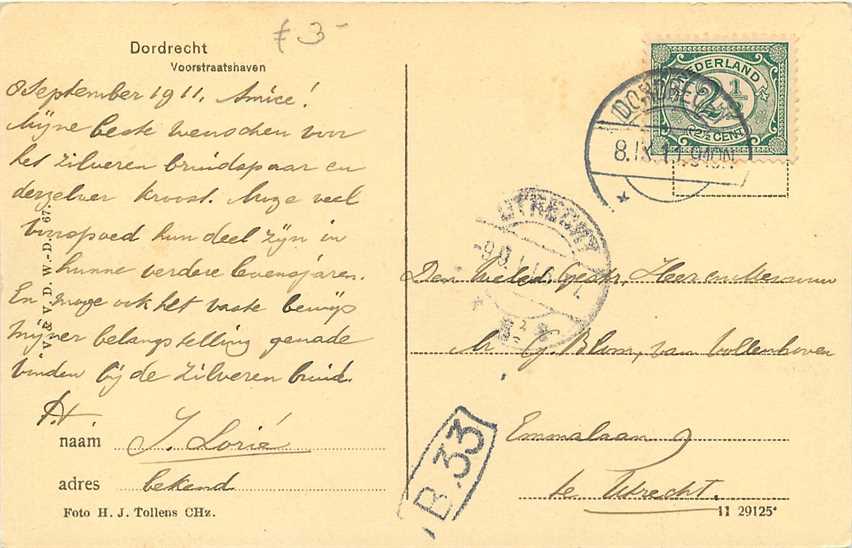 Dordrecht
Voorstraatshaven
ƒ 3-
8 September 1911. Amice!
Mijne beste wenschen voor
het zilveren bruidspaar en
derzelver kroost. Moge veel
voorspoed hun deel zijn in
hunne verdere levensjaren.
En moge ook het vaste bewijs
mijner belangstelling genade
vinden bij de zilveren bruid.
t.t.
naam J. Lorié
adres bekend
Foto H. J. Tollens CHz.
V. & V. D. W.-D. 67.
NEDERLAND
2½
2½ CENT
DORDRECHT
8.IX.11. 9-10N
UTRECHT
9.9.11
Den Weled. Gestr. Heer en Mevrouw
Mr. G. Blom, van Vollenhoven
Emmalaan 9
te Utrecht.
B 33
11 29125*